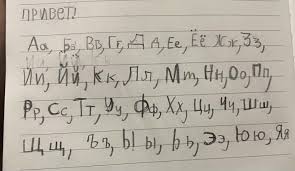 ПРИВЕТ!
Аа, Бб, Вв, Гг, Д д, Ее, Ёё Жж, Зз,
Ии, Йй, Кк, Лл, Мм, Нн, Оо, Пп,
Рр, Сс, Тт, Уу, Фф, Хх, Цц, Чч, Шш,
Щщ, Ъъ, Ыы, Ьь, Ээ, Юю, Яя